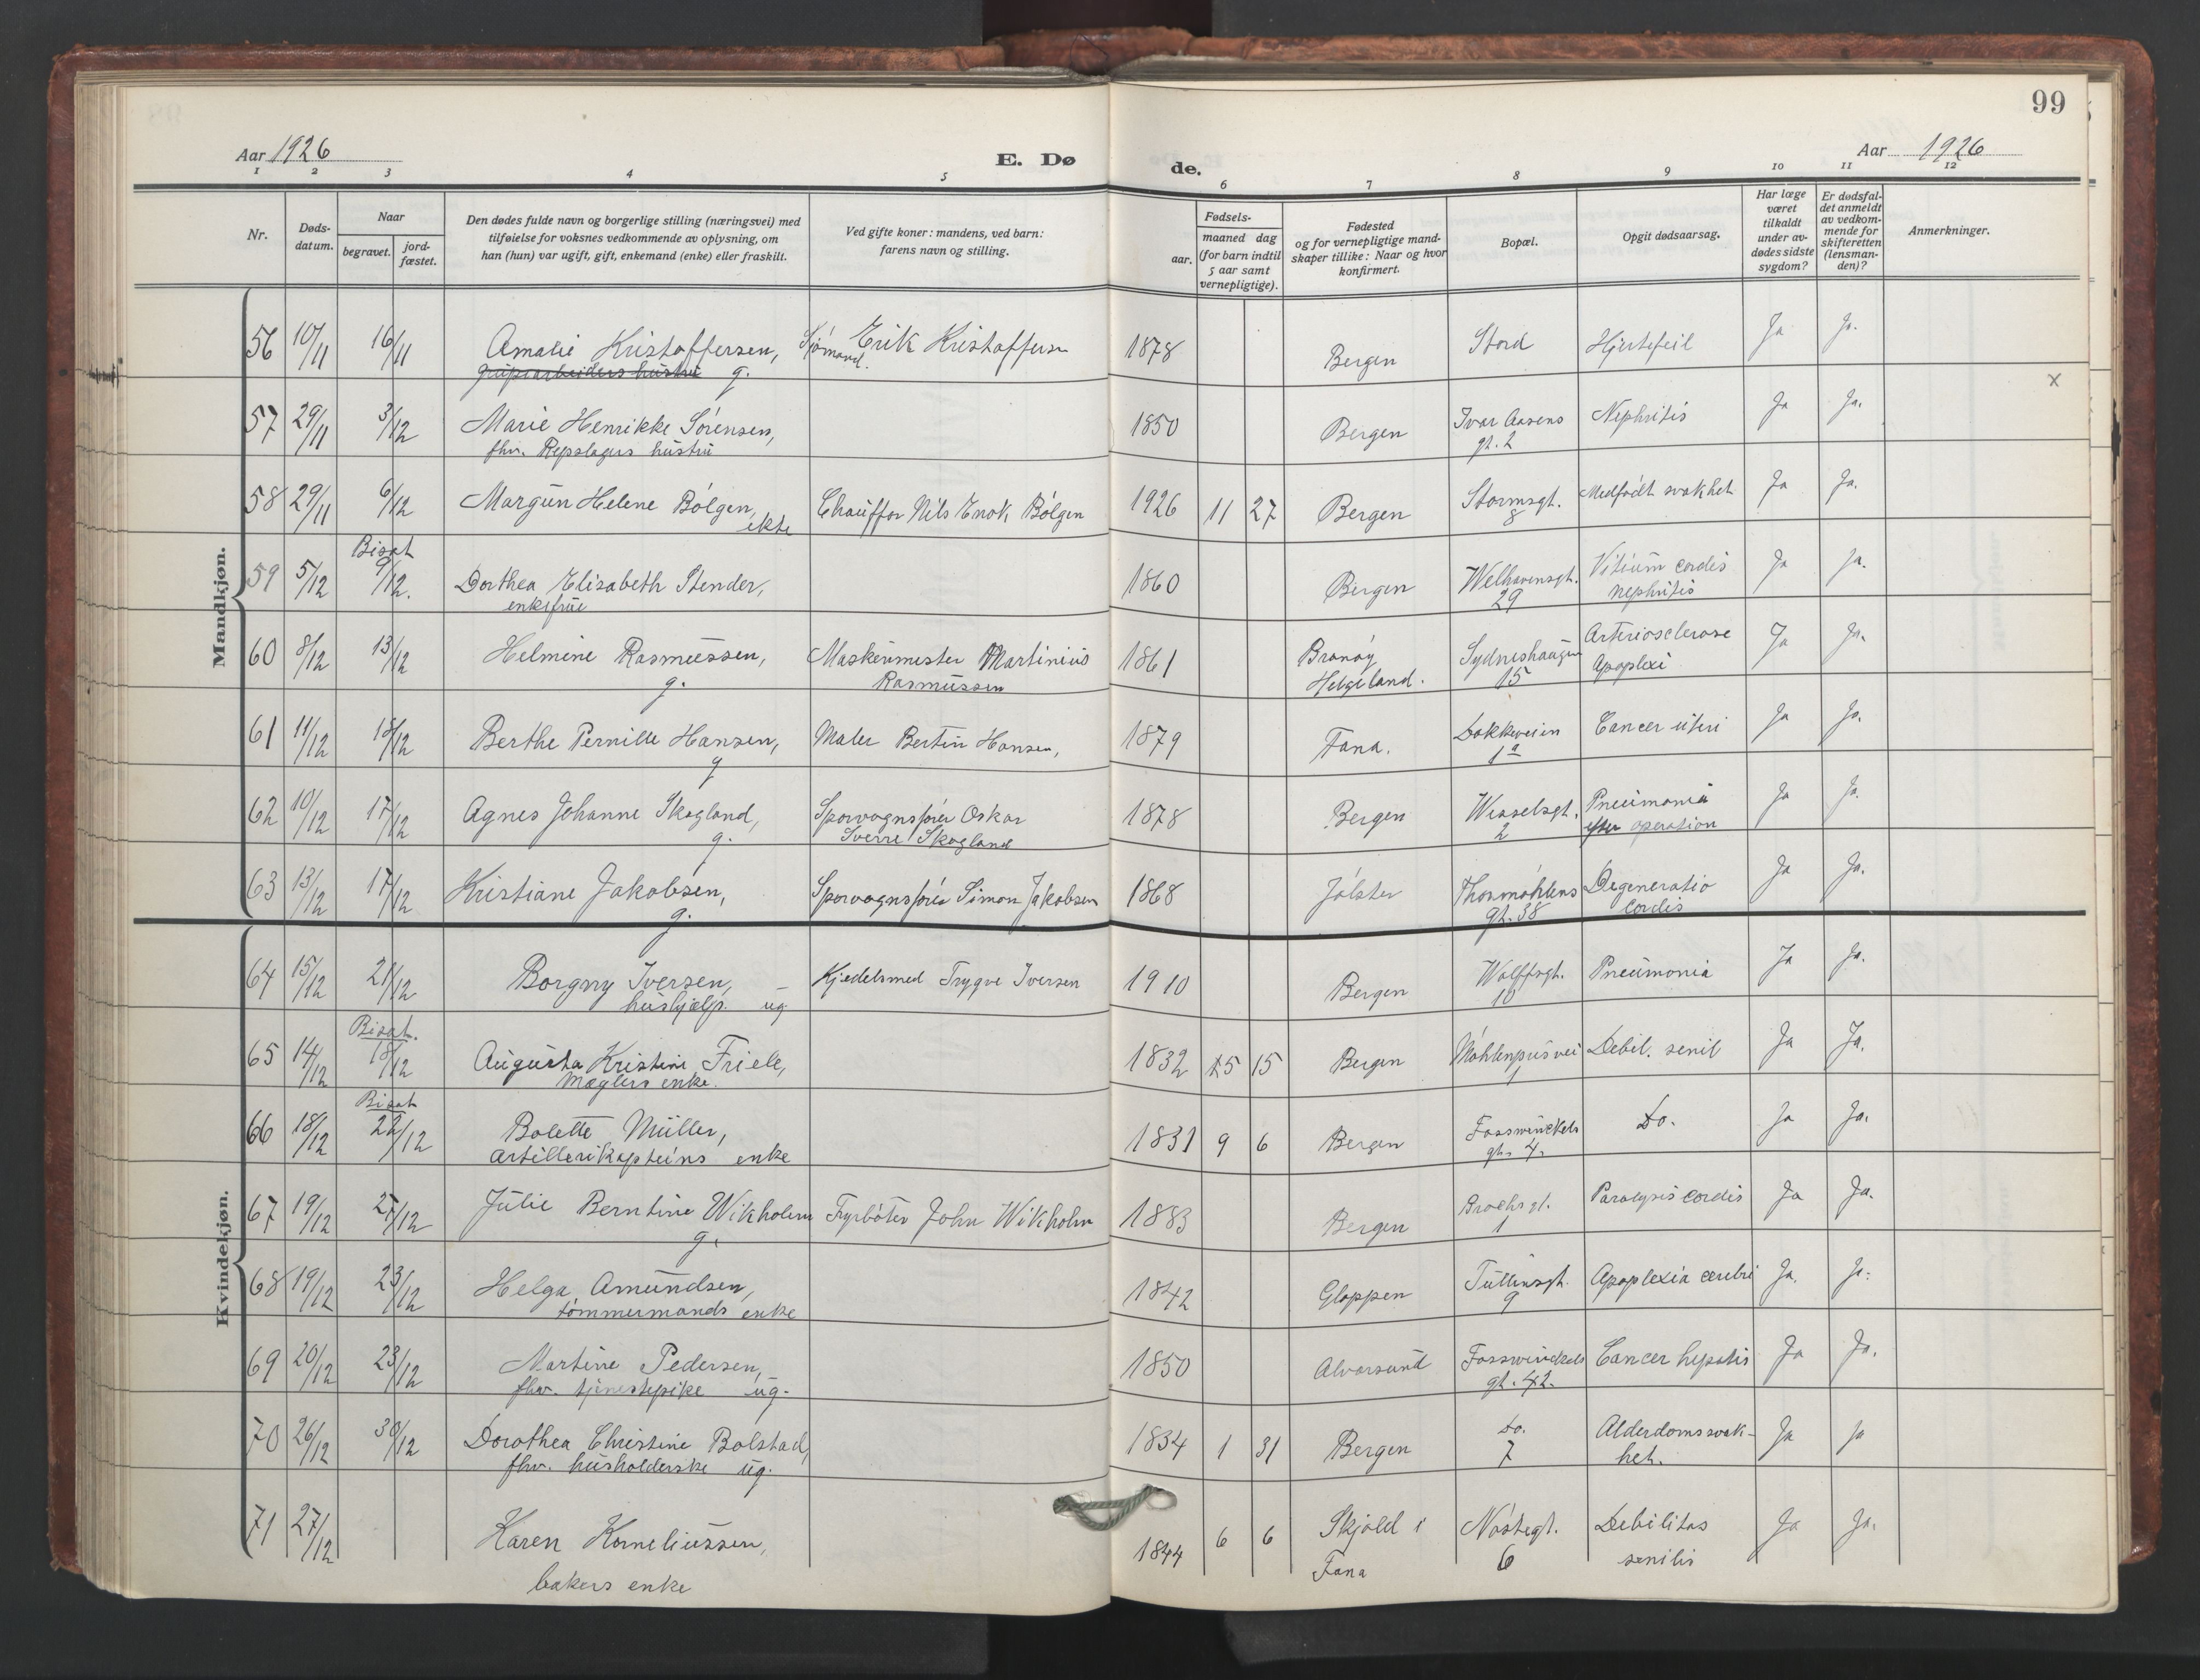 99
Aar 1926
E. Dø
de.
Aar 1926
1 2 3 4 5 6 7 8 9 10 11 12
Nr.
Døds-
datum.
Naar
begravet.
jord-
fæstet.
Den dødes fulde navn og borgerlige stilling (næringsvei) med
tilføielse for voksnes vedkommende av oplysning, om
han (hun) var ugift, gift, enkemand (enke) eller fraskilt.
Ved gifte koner: mandens, ved barn:
farens navn og stilling.
Fødsels-
aar.
maaned dag
(for barn indtil
5 aar samt
vernepligtige).
Fødested
og for vernepligtige mand-
skaper tillike: Naar og hvor
konfirmert.
Bopæl.
Opgit dødsaarsag.
Har læge
været
tilkaldt
under av-
dødes sidste
sygdom?
Er dødsfal-
det anmeldt
av vedkom-
mende for
skifteretten
(lensman-
den)?
Anmerkninger.
Mandkjøn.
Kvindekjøn.
56 10/11 16/11 Amalie Kristoffersen, Sjømand. Erik Kristoffersen 1878 Bergen Stord Hjertefeil Ja Ja.
gruparbeiders hustru g.
x
57 29/11 3/12 Marie Henrikke Sørensen, 1850 Bergen Ivar Aasens Nephritis Ja Ja.
fhv. Repslagers hustru gt. 2
58 29/11 6/12 Margun Helene Bølgen, Chauffør Nils Enok Bølgen 1926 11 27 Bergen Stormsgt. Medfødt svakhet Ja Ja.
ekte 8
Bisat
59 5/12 9/12. Dorthea Elisabeth Stender, 1860 Bergen Welhavensgt. Vitium cordis Ja Ja.
enkefrue 29 nephritis
60 8/12 13/12 Helmine Rasmussen, Maskinmester Martinius 1861 Brønøy Sydneshaugen Arteriosclerose Ja Ja.
g. Rasmussen Helgeland. 15 Apoplexi
61 11/12 18/12 Berthe Pernille Hansen, Maler Bertin Hansen, 1879 Fana. Dokkeveien Cancer uteri Ja Ja.
g 1a
62 10/12 17/12 Agnes Johanne Skogland, Sporvognsfører Oskar 1878 Bergen Wesselsgt. Pneumonia Ja Ja.
g. Sverre Skogland 2 efter operation
63 13/12 17/12 Kristiane Jakobsen, Sporvognsfører Simon Jakobsen 1868 Jølster Thormøhlens Degeneratio Ja Ja.
g. gt. 38 Cordis
64 15/12 21/12 Borgny Iversen, Kjedelsmed Trygve Iversen 1910 Bergen Wolffsgt. Pneumonia Ja Ja.
hushjælp. ug 10
Bisat.
65 14/12 18/12 Augusta Kristine Friele, 1832 5 15 Bergen Møhlenprisvei Debil. senil Ja Ja.
Mæglers enke. 1
Bisat
66 18/12 22/12 Bolette Müller, 1831 9 6 Bergen Fosswinckels Do. Ja Ja.
Artillerikapteins enke gt. 4.
67 19/12 27/12 Julie Berntine Wikholm Fyrbøter John Wikholm 1883 Bergen Brochs gt. Paralysis cordis Ja Ja.
g. 1
68 19/12 23/12 Helga Amundsen, 1842 Gloppen Tullinsgt. Apoplexia cerebri Ja. Ja.
tømmermands enke 9
69 20/12 23/12 Martine Pedersen, 1850 Alversund Fosswinckels Cancer hepatis Ja Ja.
fhv. tjenestepike ug. gt. 42.
70 26/12 30/12 Dorothea Christine Bolstad, 1834 1 31 Bergen do. Alderdomssvak- Ja Ja
fhv. husholderske ug. 7 het.
71 27/12 Karen Korneliussen, 1844 6 6 Skjold i Nøstegt. Debilitas Ja Ja.
bakers enke Fana 6 senilis